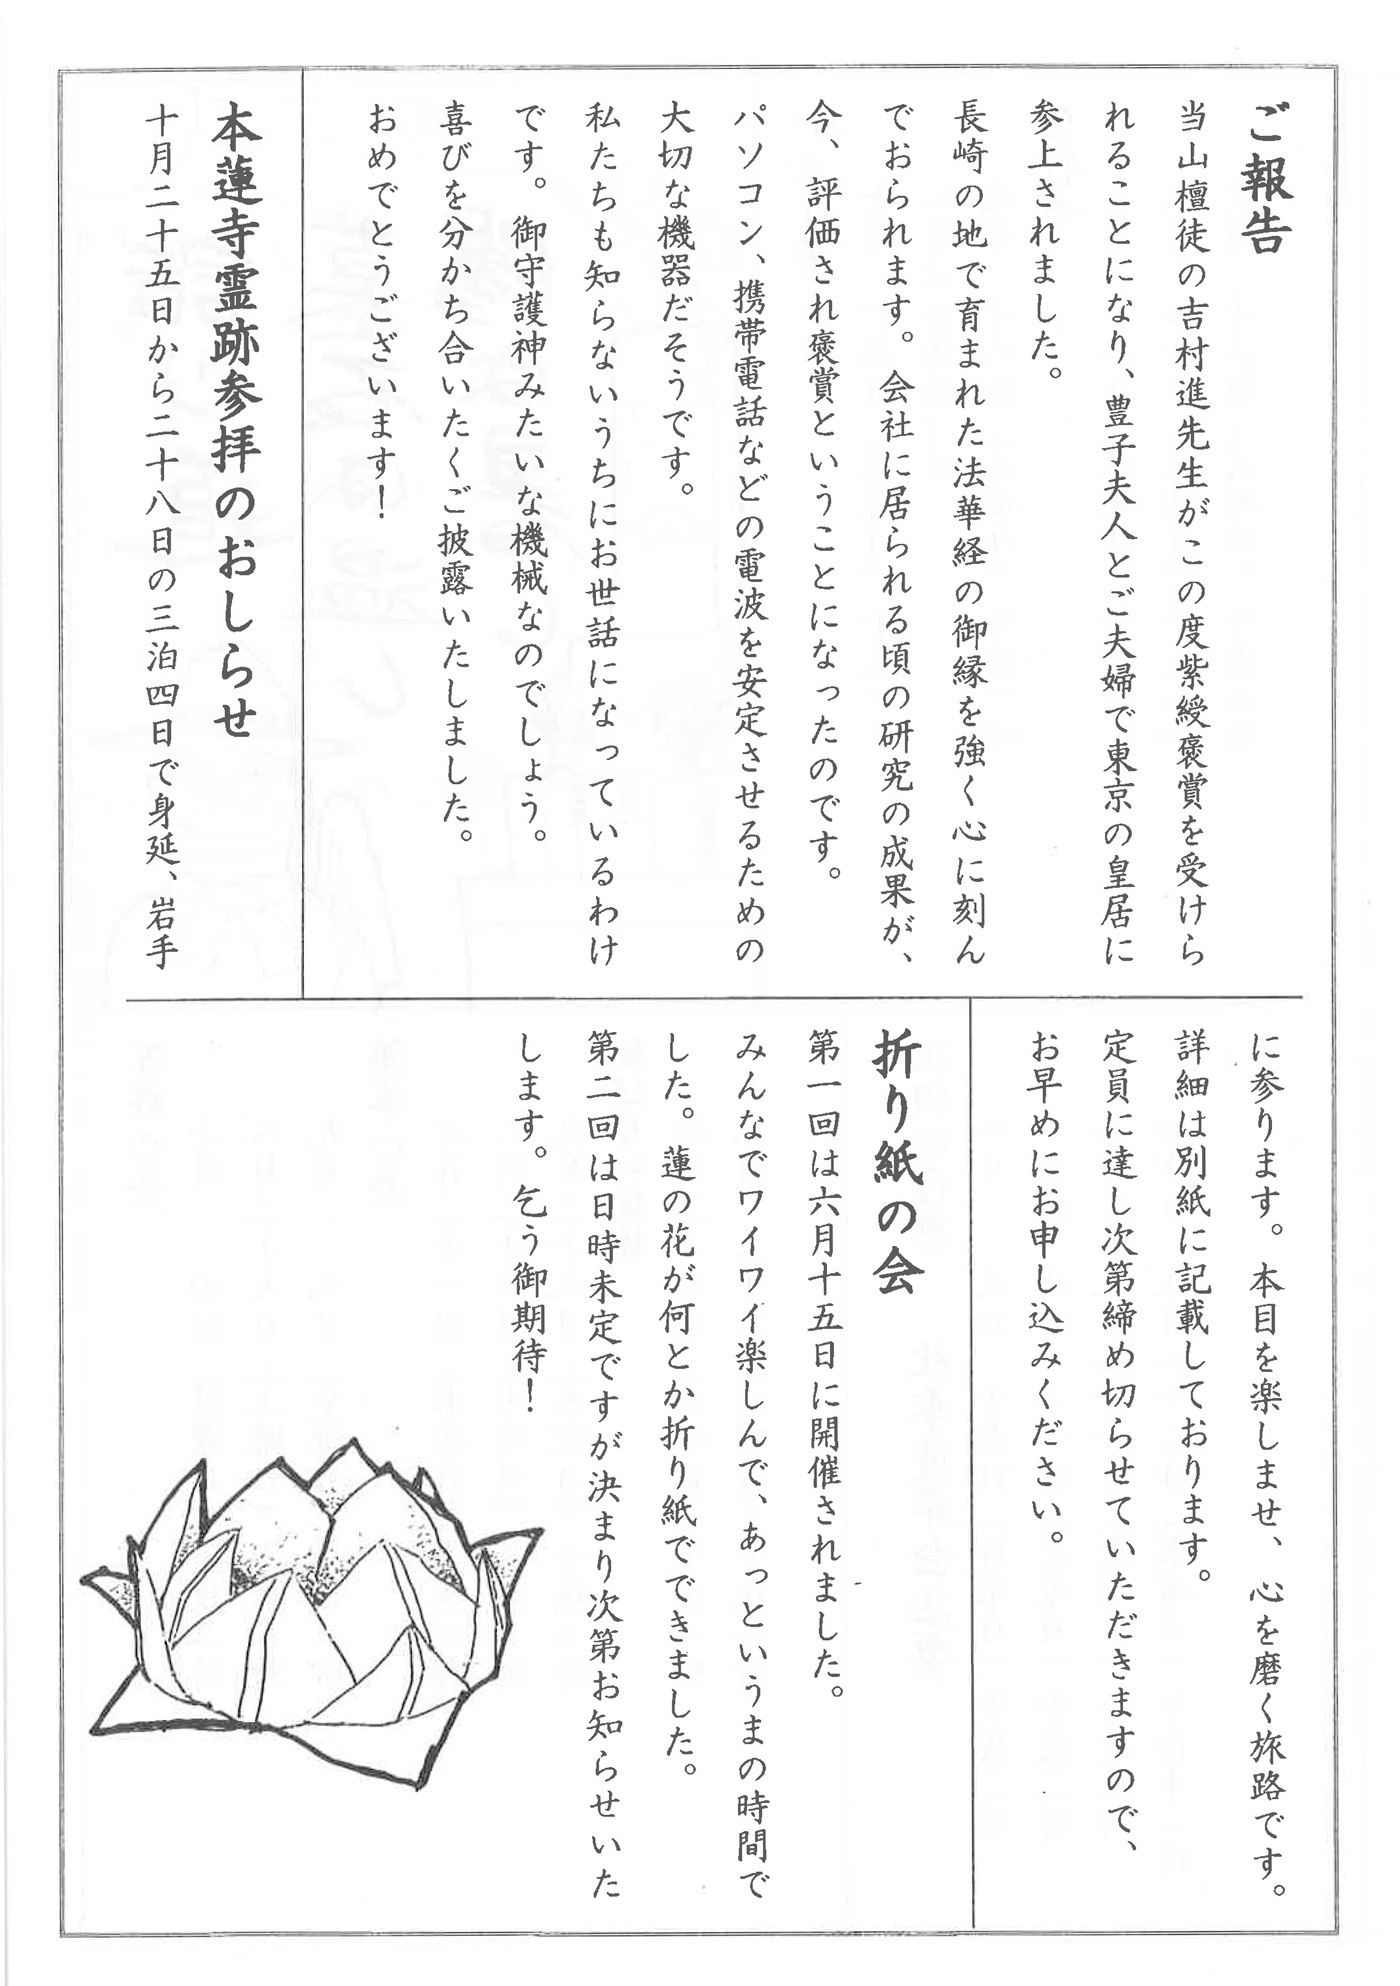 ご報告
当山檀徒の吉村進先生がこの度紫綬褒賞を受けら
れることになり、豊子夫人とご夫婦で東京の皇居に
参上されました。
長崎の地で育まれた法華経の御縁を強く心に刻ん
でおられます。会社に居られる頃の研究の成果が、
今、評価され褒賞ということになったのです。
パソコン、携帯電話などの電波を安定させるための
大切な機器だそうです。
私たちも知らないうちにお世話になっているわけ
です。御守護神みたいな機械なのでしょう。
喜びを分かち合いたくご披露いたしました。
おめでとうございます！
本蓮寺霊跡参拝のおしらせ
十月二十五日から二十八日の三泊四日で身延、岩手
に参ります。本目を楽しませ、心を磨く旅路です。
詳細は別紙に記載しております。
定員に達し次第締め切らせていただきますので、
お早めにお申し込みください。
折り紙の会
第一回は六月十五日に開催されました。
みんなでワイワイ楽しんで、あっというまの時間で
した。蓮の花が何とか折り紙でできました。
第二回は日時未定ですが決まり次第お知らせいた
します。乞う御期待！